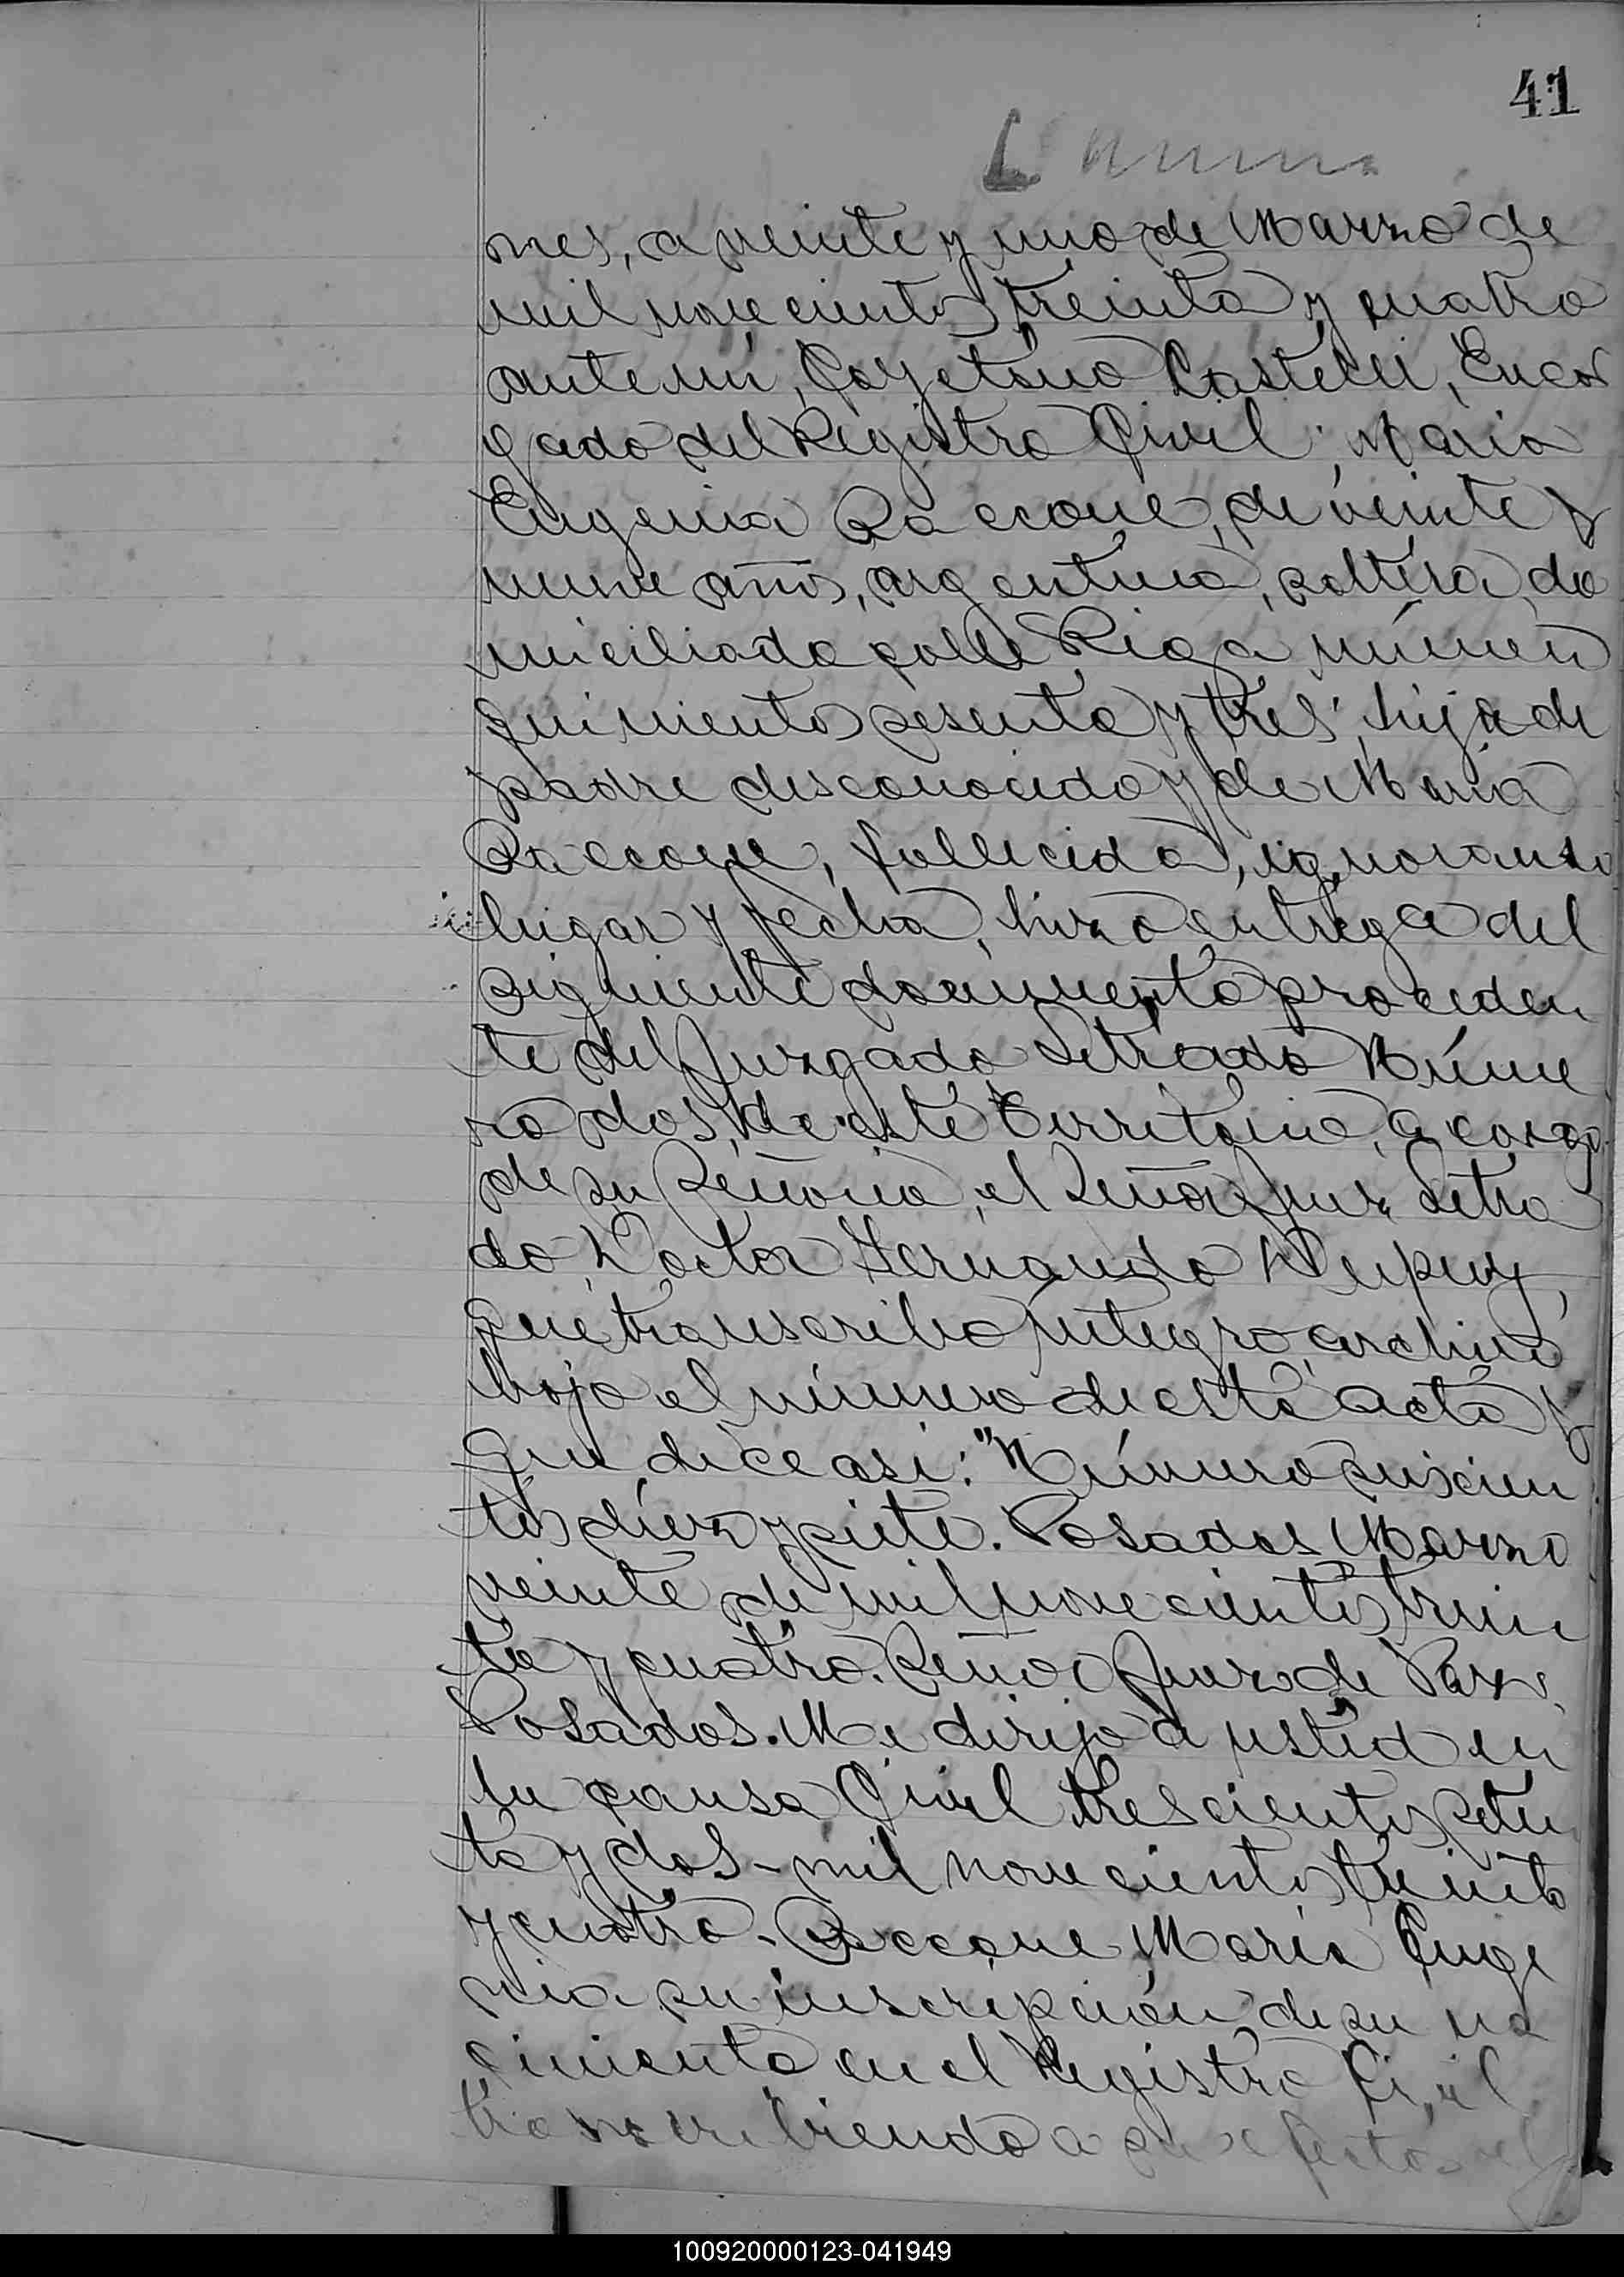 41
nes, a veinte y uno de Marzo de
mil novecientos treinta y cuatro
ante mí, Cayetano Castelli, Encar
gado del Registro Civil; Maria
Eugenia Raccone, de veinte y
nueve años, argentina, soltera, do
miciliada calle Rioja número
quinientos sesenta y tres; hija de
padre desconocido y de María
Raccone, fallecida, ignorando
lugar y fecha, hizo entrega del
siguiente documento proceden
te del Juzgado Letrado Núme
ro dos, de este Territorio, a cargo
de su Señoria, el Señor Juez Letra
do Doctor Hernando
que transcribo íntegro archivo
bajo el número de esta acta y
que dice asi: "Número seiscien
tos diez y siete. Posadas Marzo
veinte de mil novecientos trein
ta y cuatro. Señor Juez de Paz.
Posadas. Me dirijo a usted en
la causa Civil trescientos seten
ta y dos - mil novecientos treinta
y cuatro - Raccone María Euge
nia su inscripción de su na
cimiento en el Registro Civil
transcribiendo a sus efectos el
100920000123-041949